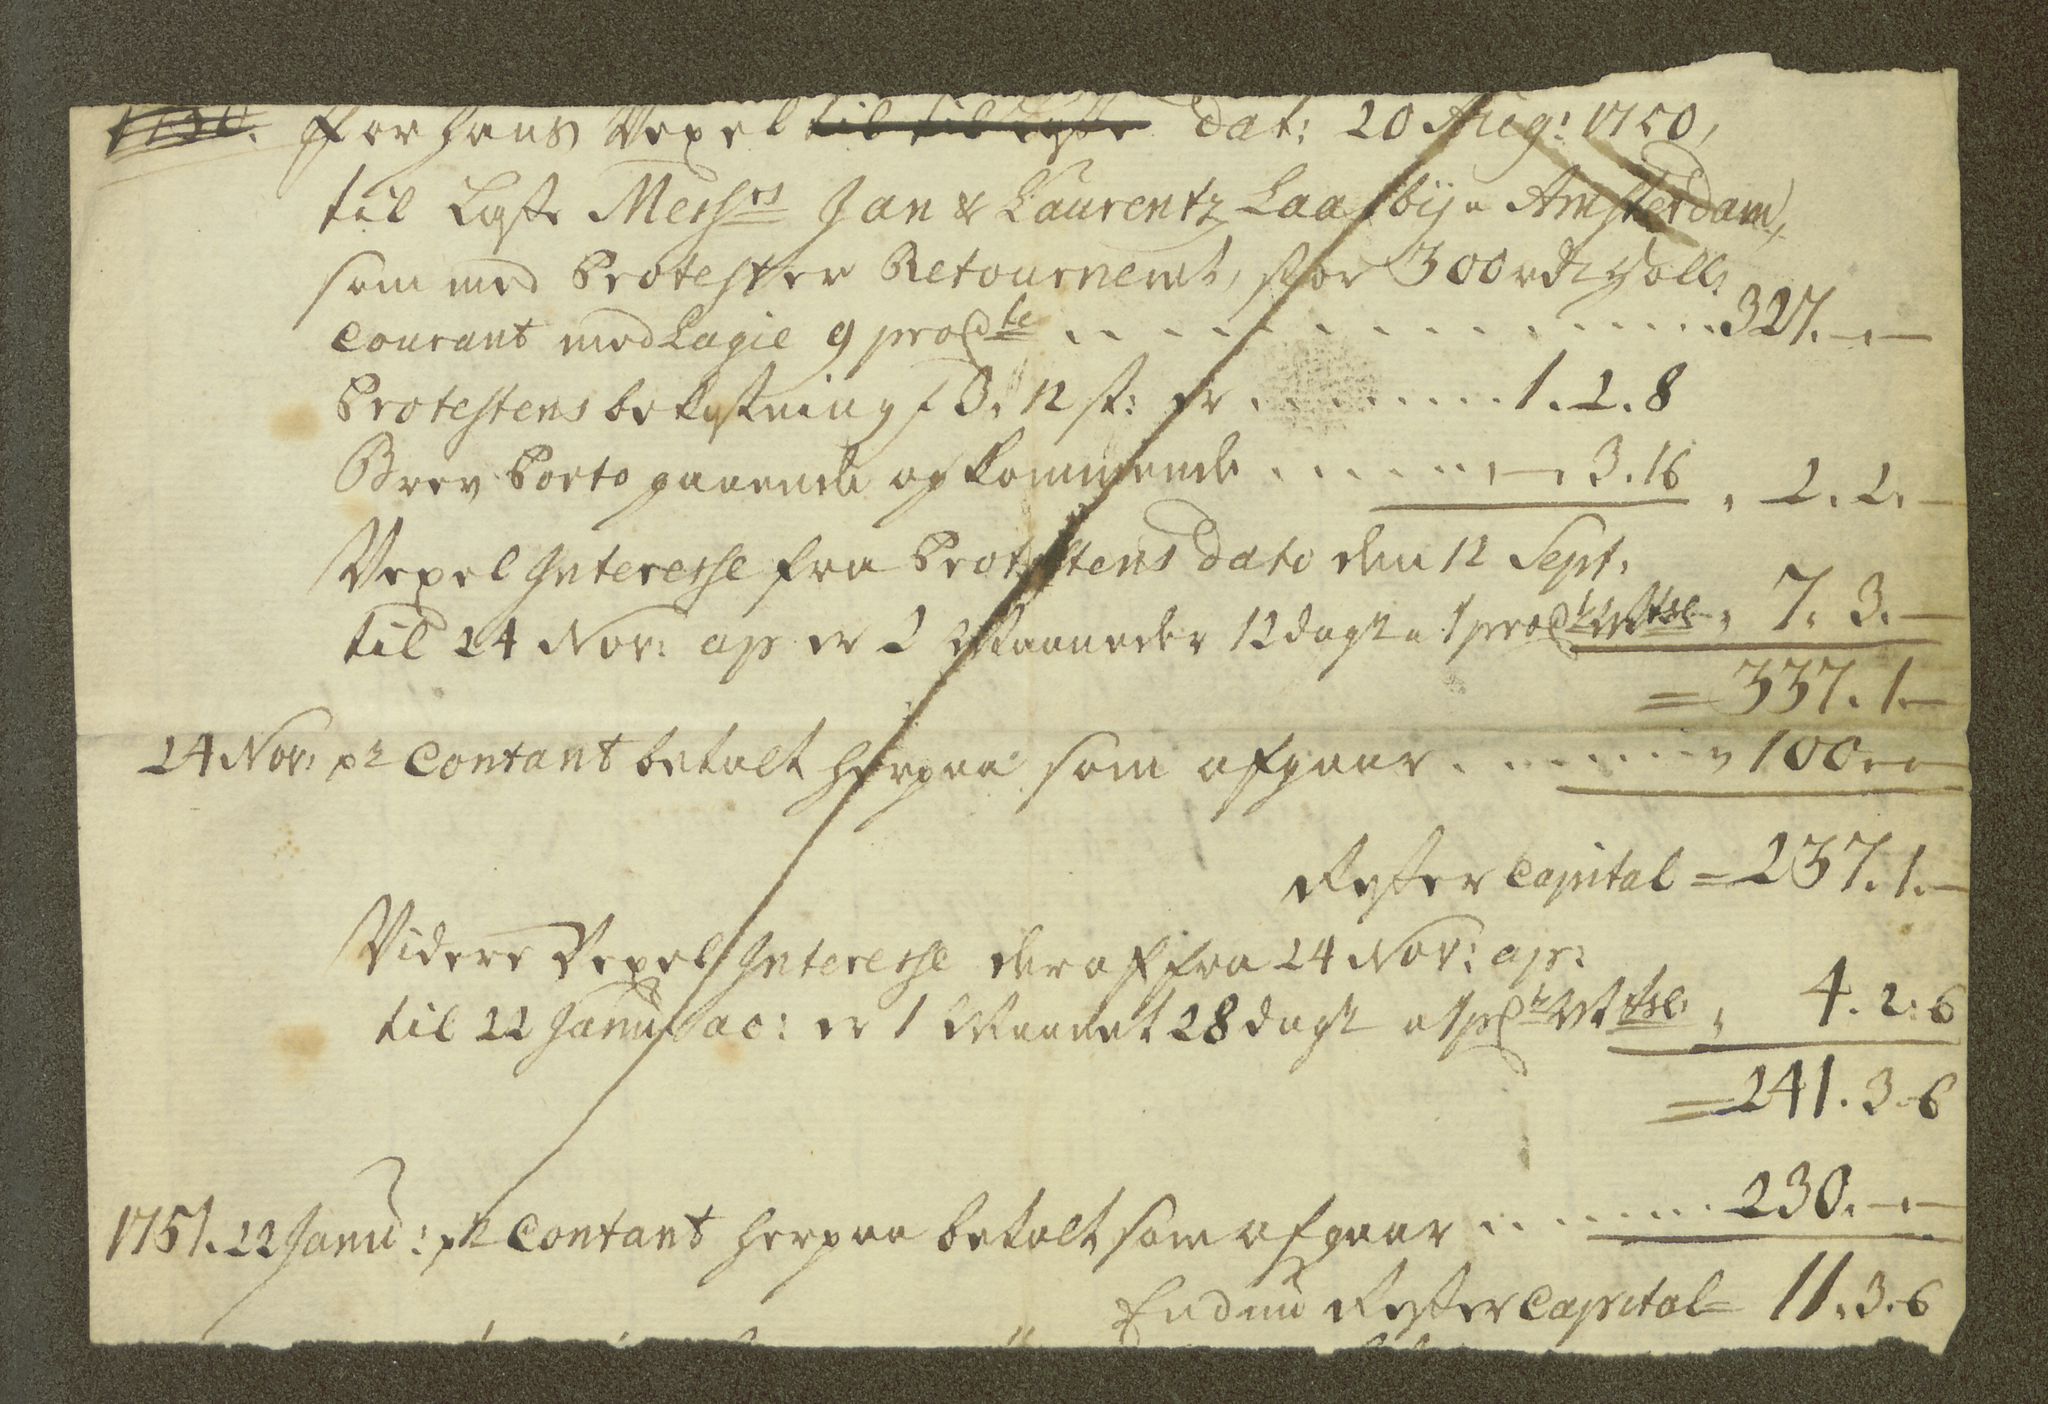 1750. For hans Vexel til til Laste dat: 20 Aug: 1750,
til Laste Messrs Jan & Laurentz Laasbÿe Amsterdam,
som med Protest er Retourneret, stor 300 rdr Holl:
Courant med Lagie 9 proCto .................. 327.—.—
Protestens bekostning f 3. 12 st: er ......... 1. 2. 8
Brev Porto gaaende og kommende ....... —. 3. 16 , 2. 2. —
Vexel Interesse fra Protestens dato den 12 Sept:
til 24 Nov: ap er 2 Maaneder 12 dage a 1 proCto , 7. 3. —
= 337. 1. —
24 Nov: pr Contant betalt herpaa som afgaar ........ „ 100 „ —
Rester Capital = 237. 1. —
Videre Vexel Interesse deraf fra 24 Nov: ap:
til 22 Janu: ao: er 1 Maanet 28 dage a 1 pCto , 4. 2. 6
= 241. 3. 6
1751. 22 Janu: pr Contant herpaa betalt som afgaar ......... 230. —. —
End nu Rester Capital = 11. 3. 6